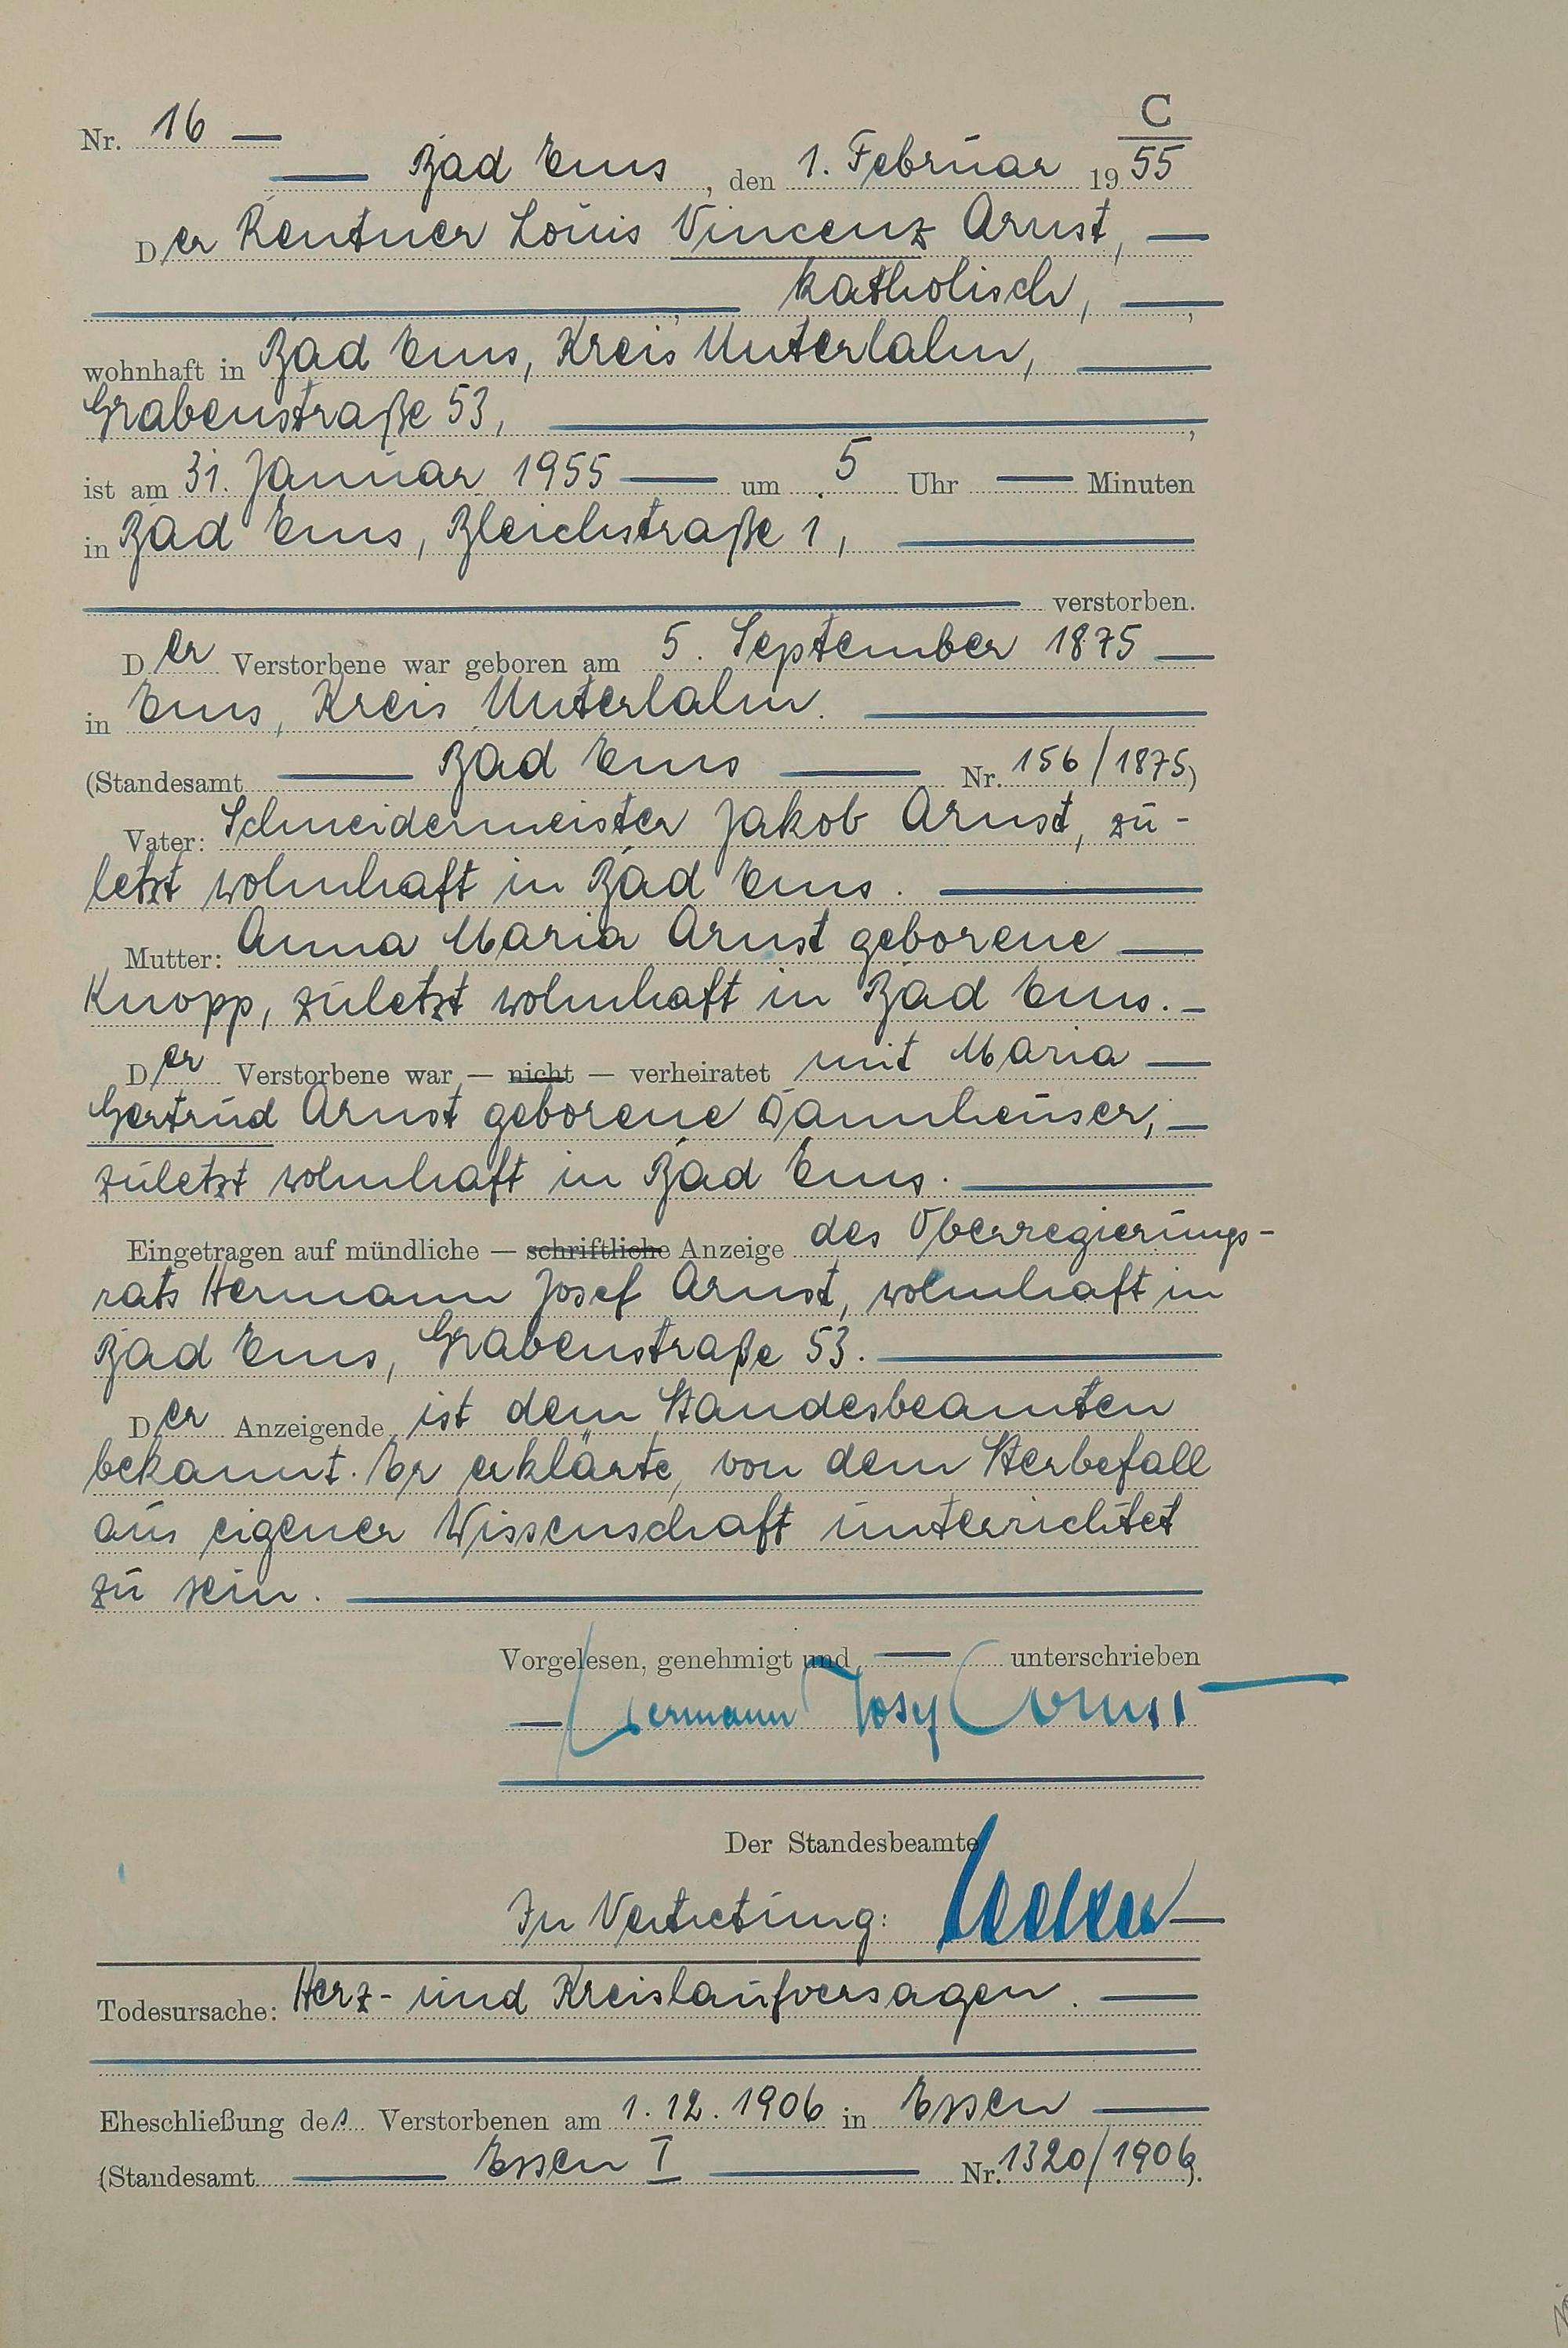 C
Nr. 16 —
— Bad Ems, den 1. Februar 1955
Der Rentner Louis Vincenz Arnst, —
— , katholisch, — ,
wohnhaft in Bad Ems, Kreis Unterlahn, —
Grabenstraße 53, — ,
ist am 31. Januar 1955 — um 5 Uhr — Minuten
in Bad Ems, Bleichstraße 1, —
— verstorben.
Der Verstorbene war geboren am 5. September 1875 —
in Ems, Kreis Unterlahn. —
(Standesamt — Bad Ems — Nr. 156/1875)
Vater: Schneidermeister Jakob Arnst, zu-
letzt wohnhaft in Bad Ems. —
Mutter: Anna Maria Arnst geborene —
Knopp, zuletzt wohnhaft in Bad Ems. —
Der Verstorbene war — nicht — verheiratet mit Maria —
Gertrud Arnst geborene Dannheuser, —
zuletzt wohnhaft in Bad Ems. —
Eingetragen auf mündliche — schriftliche Anzeige des Oberregierungs-
rats Hermann Josef Arnst, wohnhaft in
Bad Ems, Grabenstraße 53. —
Der Anzeigende ist dem Standesbeamten
bekannt. Er erklärte, von dem Sterbefall
aus eigener Wissenschaft unterrichtet
zu sein. —
Vorgelesen, genehmigt und — unterschrieben
— Hermann Josef Arnst —
Der Standesbeamte
In Vertretung:
Todesursache: Herz- und Kreislaufversagen. —
Eheschließung des Verstorbenen am 1.12.1906 in Essen —
(Standesamt — Essen I — Nr. 1320/1906).